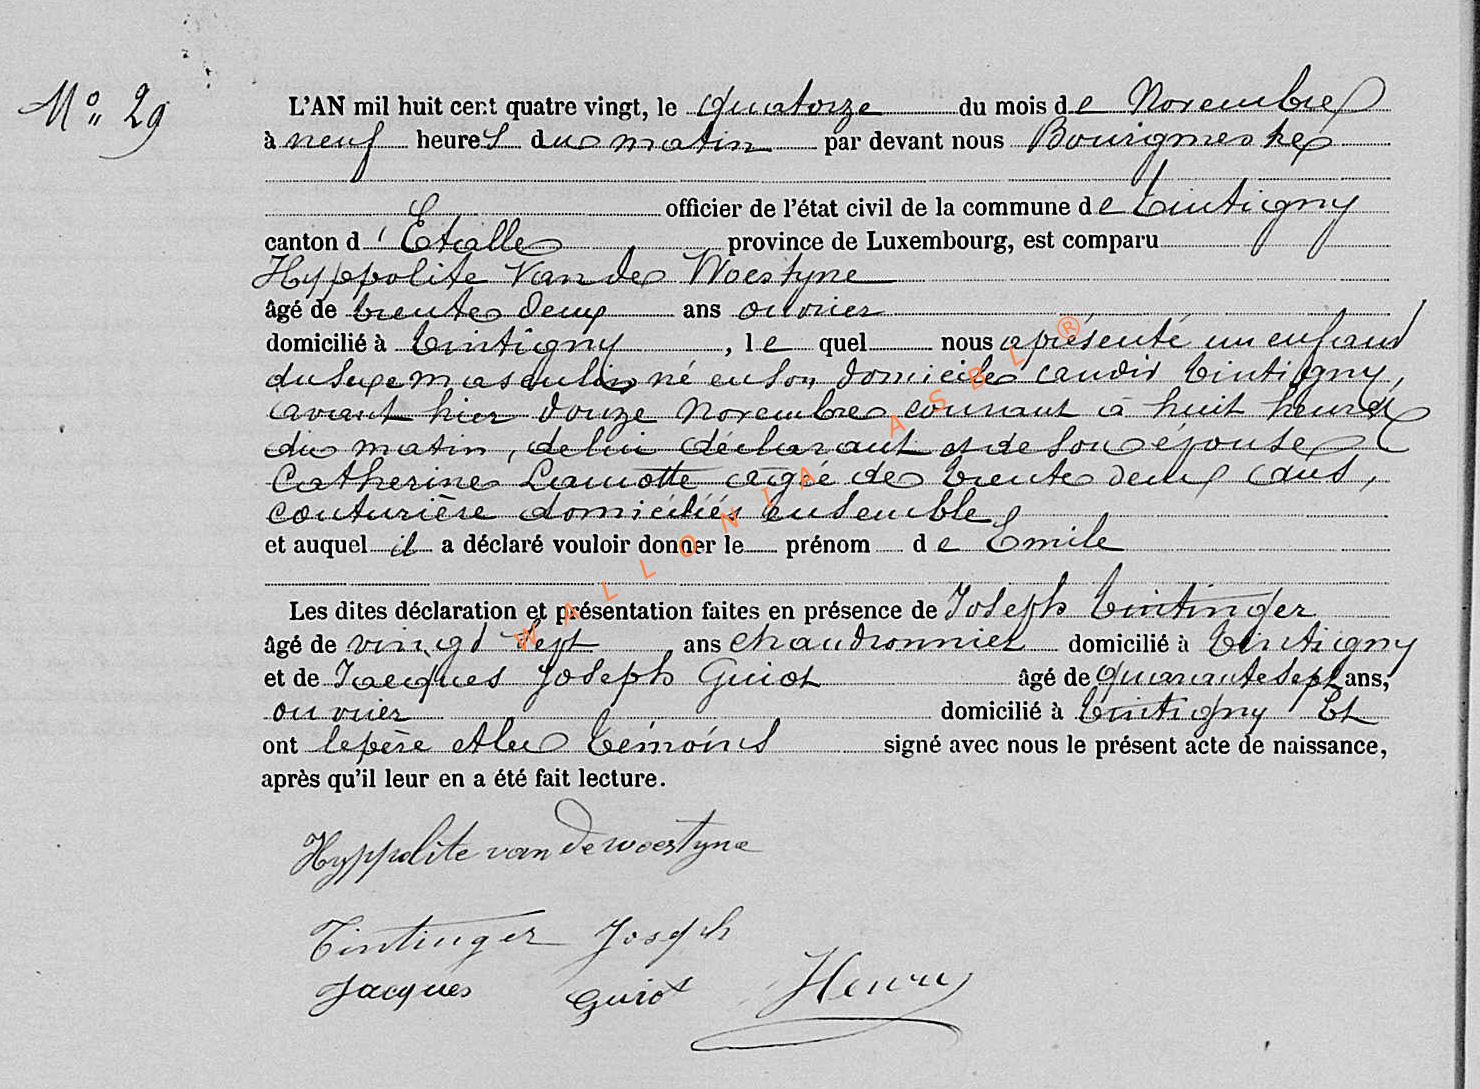 N° 29
L'AN mil huit cent quatre vingt, le quatorze du mois de Novembre
à neuf heures du matin par devant nous Bourgmestre
officier de l'état civil de la commune de Tintigny
canton d'Etalle province de Luxembourg, est comparu
Hyppolite Van de Woestyne
âgé de trente deux ans ouvrier
domicilié à Tintigny, le quel nous a présenté un enfant
du sexe masculin né en son domicile audit Tintigny,
avant hier douze Novembre courant à huit heures
du matin, de lui déclarant et de son épouse
Catherine Lamotte agée de trente deux ans,
couturière domiciliés ensemble
et auquel il a déclaré vouloir donner le prénom de Emile
Les dites déclaration et présentation faites en présence de Joseph Tintinger
âgé de vingt sept ans chaudronnier domicilié à Tintigny
et de Jacques Joseph Guiot âgé de quarante sept ans,
ouvrier domicilié à Tintigny Et
ont le père et les témoins signé avec nous le présent acte de naissance,
après qu'il leur en a été fait lecture.
Hyppolite van de woestyne
Tintinger Joseph
Jacques Guiot Henry
WALLONIA ASBL ®